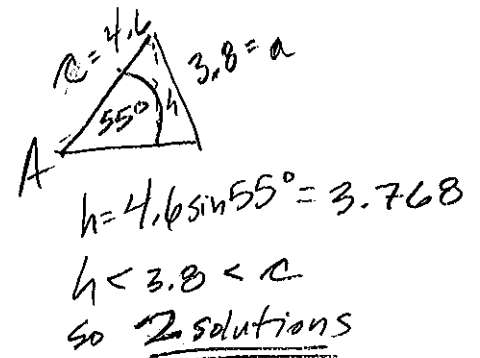 c = 4.6
3.8 = a
55°
h
A
h = 4.6 sin 55° = 3.768
h < 3.8 < c
so 2 solutions